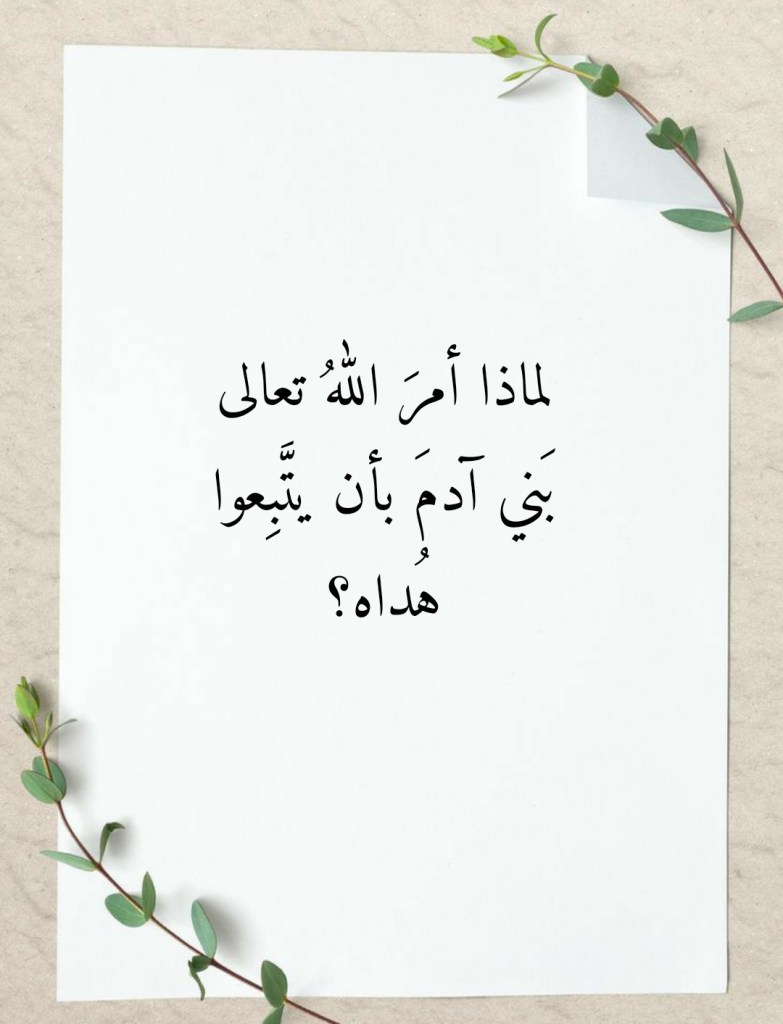 لماذا أمرَ اللهُ تعالى
بَني آدمَ بأن يتَّبِعوا
هُداه؟